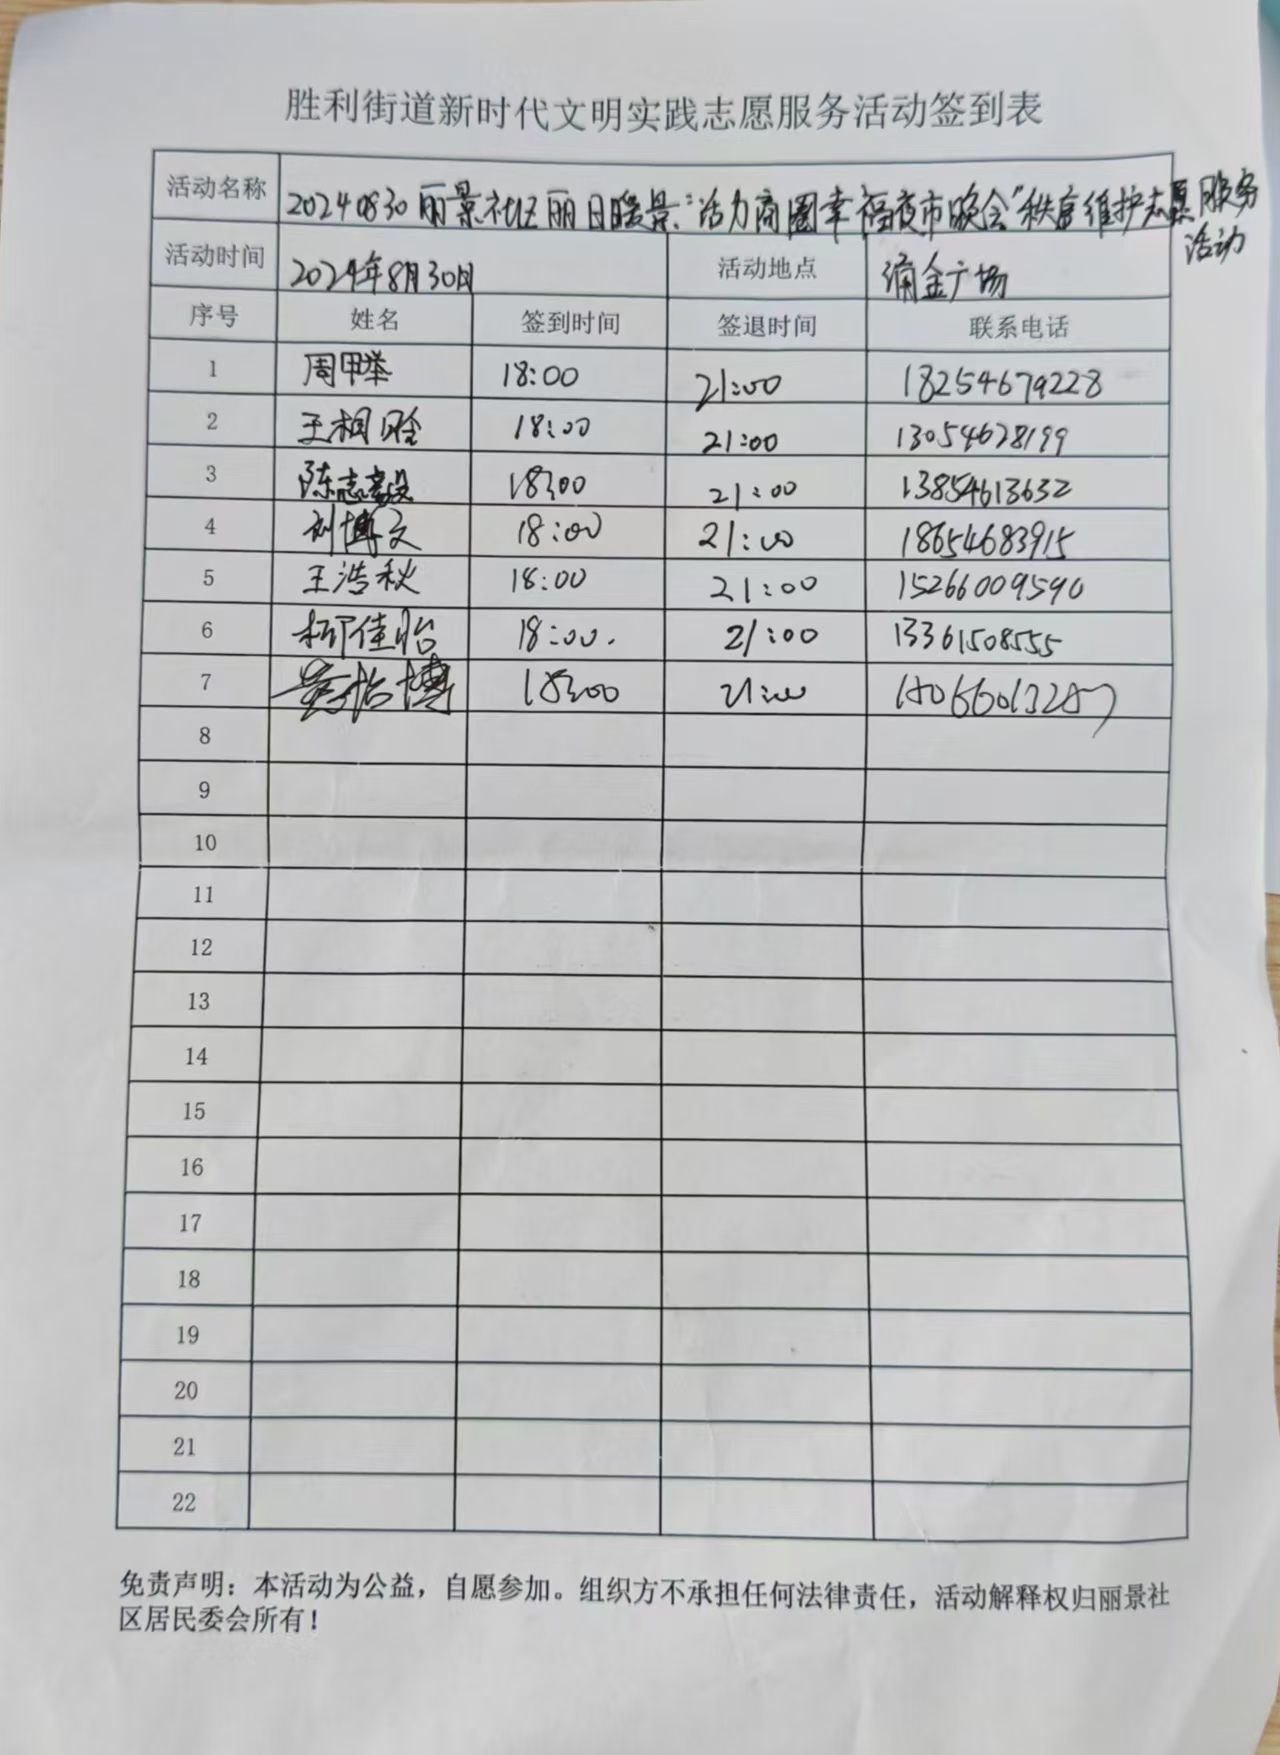 胜利街道新时代文明实践志愿服务活动签到表
活动名称 20240830丽景社区丽日暖景:"活力商圈幸福夜市晚会"秩序维护志愿服务
活动
活动时间 2024年8月30日 活动地点 涌金广场
序号 姓名 签到时间 签退时间 联系电话
1 周甲举 18:00 21:00 18254679228
2 王相 18:00 21:00 13054628199
3 陈志毅 18:00 21:00 13854613632
4 刘博文 18:00 21:00 18654683915
5 王浩秋 18:00 21:00 15266009590
6 柳佳怡 18:00. 21:00 13361508555
7 18:00 21:00
8
9
10
11
12
13
14
15
16
17
18
19
20
21
22
免责声明：本活动为公益，自愿参加。组织方不承担任何法律责任，活动解释权归丽景社
区居民委会所有！